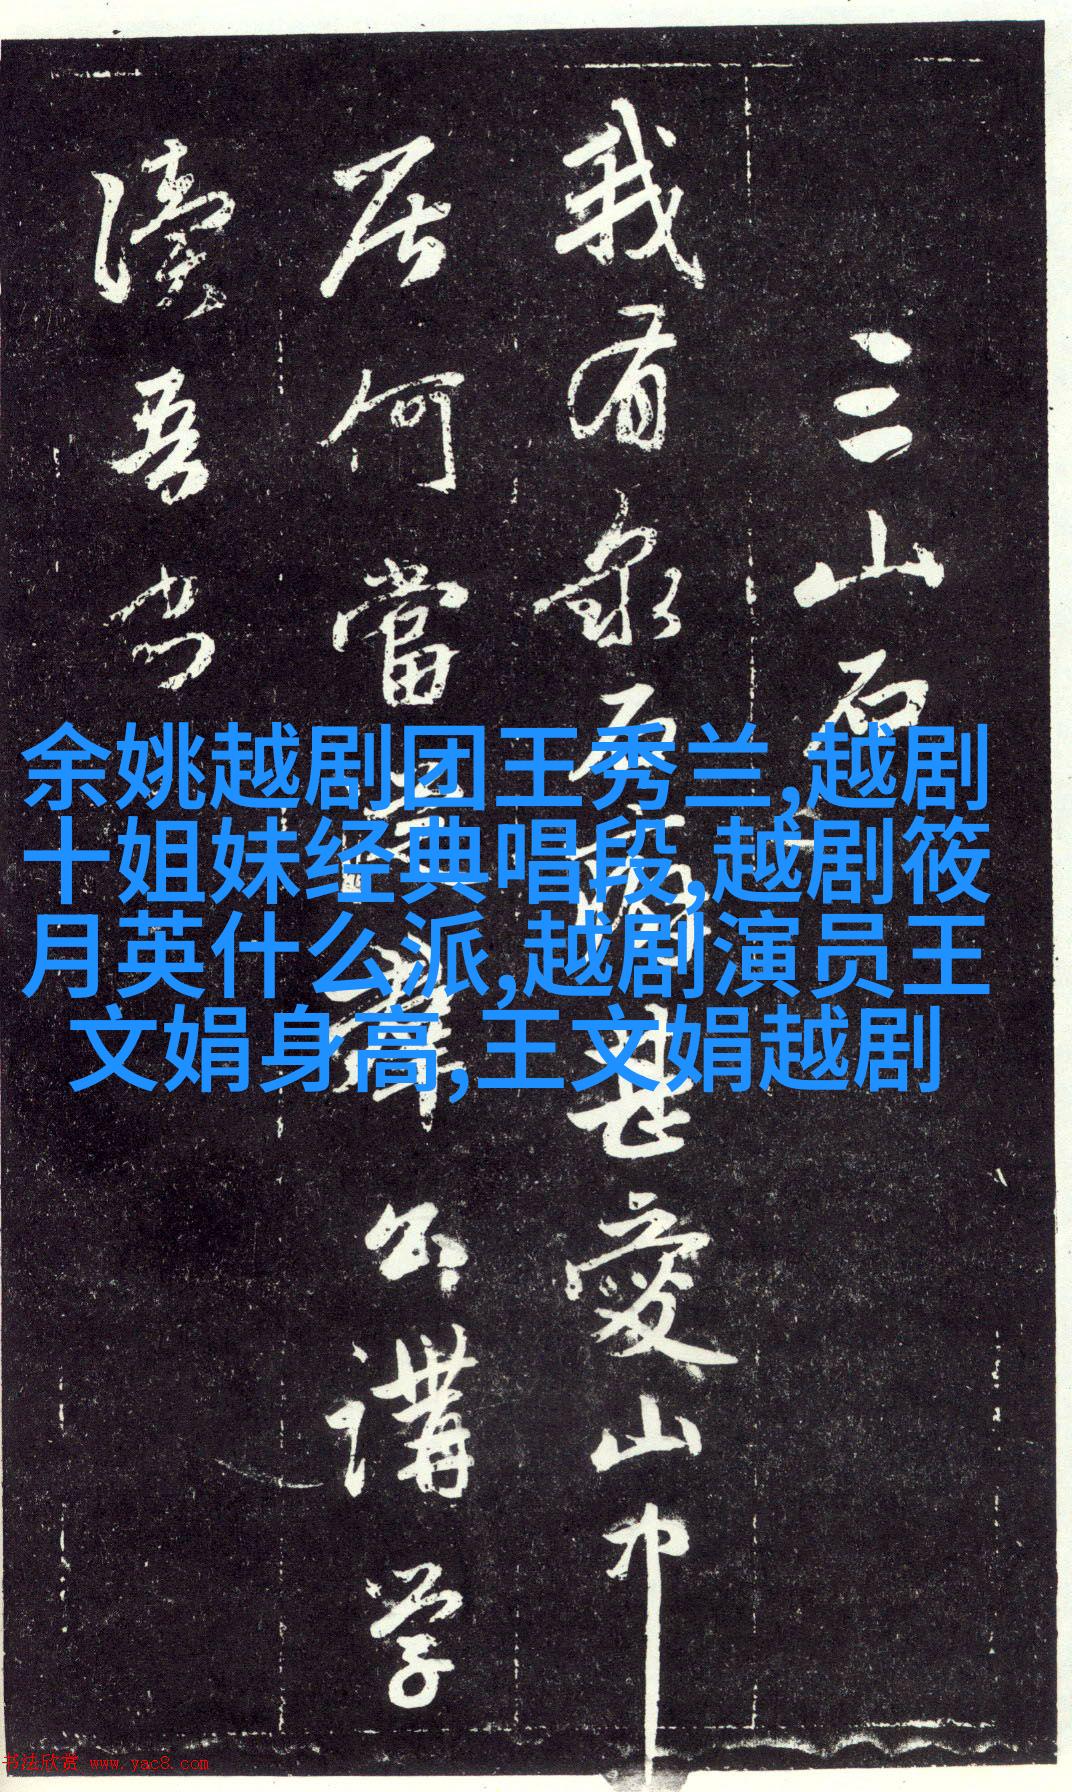 三山石
我有泉石癖甚愛山中
居何當羣公講學
讀吾書
余姚越剧团王秀兰,越剧
十姐妹经典唱段,越剧筱
月英什么派,越剧演员王
文娟身高,王文娟越剧
书法欣赏 www.yac8.com